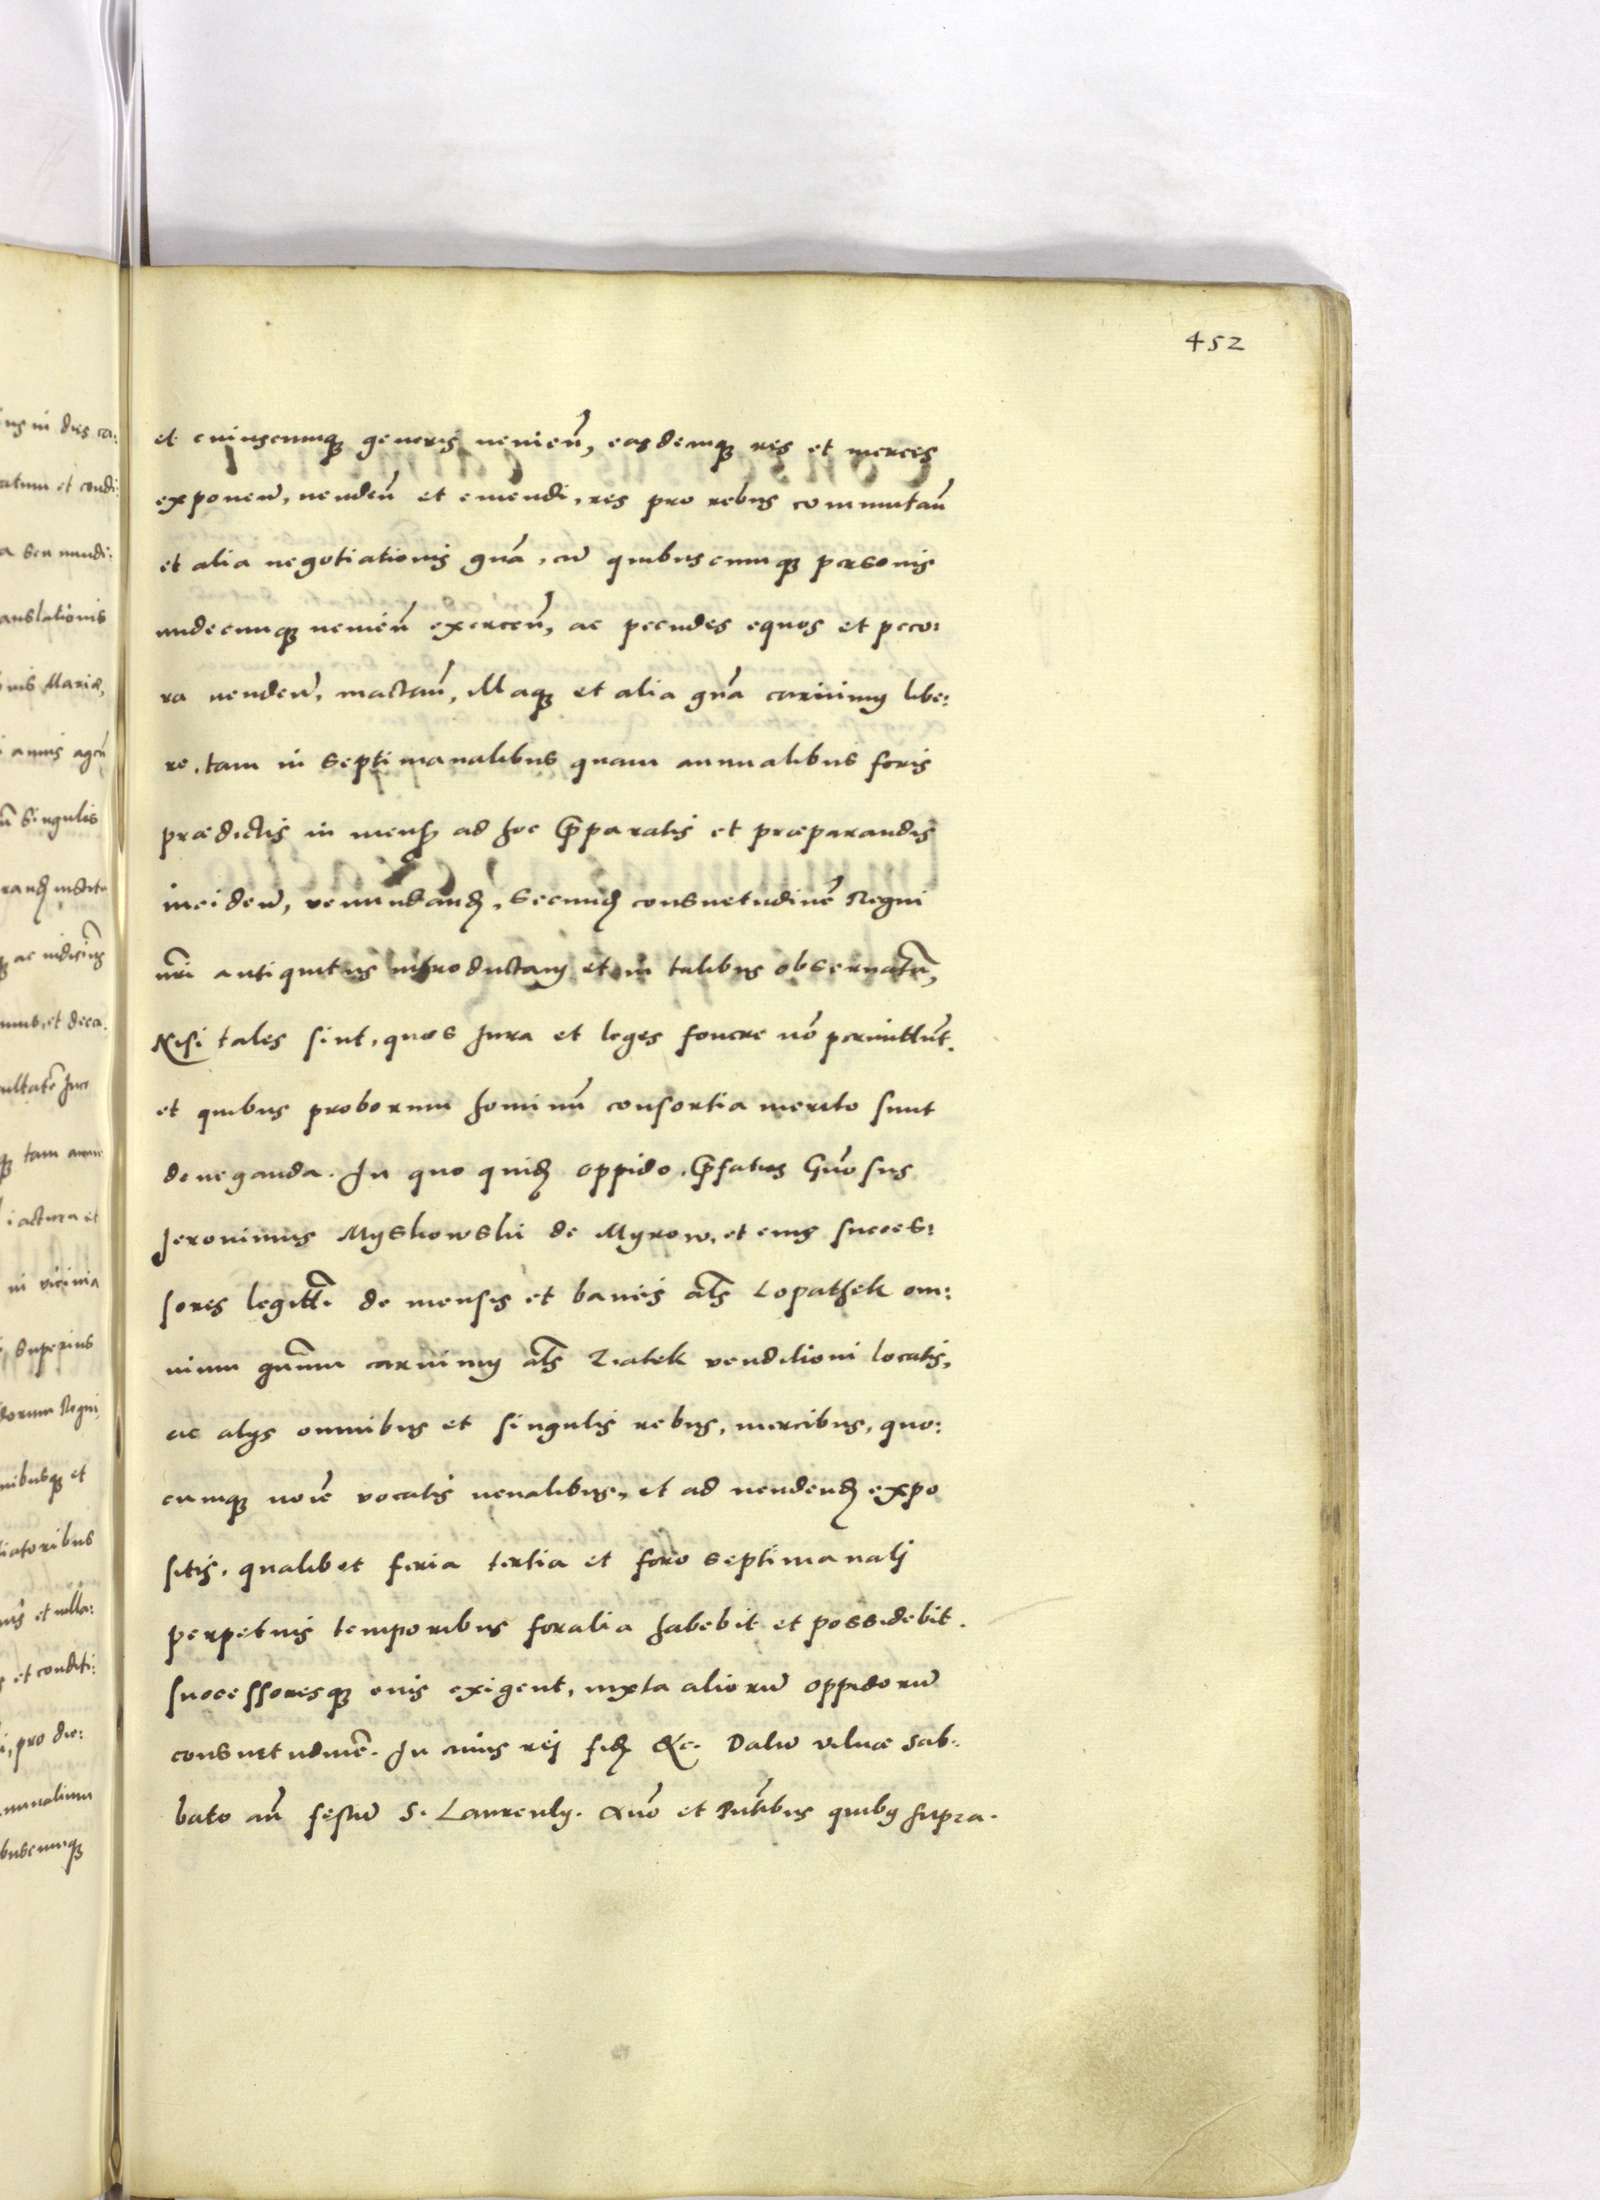 452
et cuiuscumq generis venień, easdemq res et merces
exponeñ, vendeñ et emendi, res pro rebus commutań
et alia negotiationis gnā, cū quibuscunq personis
undecunq venień exerceñ, ac pecudes equos et peco:
ra vendeñ, mactań, illaq et alia gnā carnium libe:
re, tam in septimanalibus quam annualibus foris
prædictis in mens ad hoc pparatis et præparandis
incideñ, venundand, secund consuetudinē Regni
nri antiquitus introductam et in talibus obseruatā,
Nisi tales sint, quos Jura et leges fouere nō permittūt.
et quibus proborum hominū consortia merito sunt
deneganda. In quo quid oppido, pfatus Gnōsus
Jeronimus Myskowskii de Myrow, et eius succes:
sores legitti de mensis et bancis als Lopathek om:
nium gnūm carnium als Ziatek venditioni locatis,
ac alys omnibus et singulis rebus, mercibus, quo:
cumq noīe vocatis venalibus, et ad vendend expo
sitis, qualibet feria tertia et foro septimanalj
perpetuis temporibus foralia habebit et possidebit.
successoresq eius exigent, iuxta aliorū oppidorū
consuetudinē. In cuius rej fid &c. Datū Vilnæ Sab.
bato añ festū S. Laurenty. Añō et Pñtibus quibus supra.
ns in dies ca:
atum et condi:
a seu nundi:
anslationis
nis Mariæ,
annis
singulis
et deca.
tam
iactura et
in vicinia
superius
dorum Regni
nibusq et
iatoribus
et villa:
et conditi:
pro die:
nnualium
buscumq